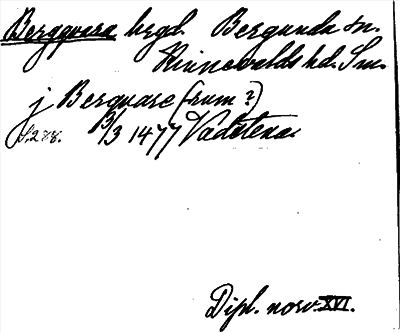 Bergqvara hrgd. Bergunda sn.
Kinnevalds hd. Sm.
j Berquare (rum?)
S. 278. 3/3 1477 Vadstena.
Dipl. norv. XVI.